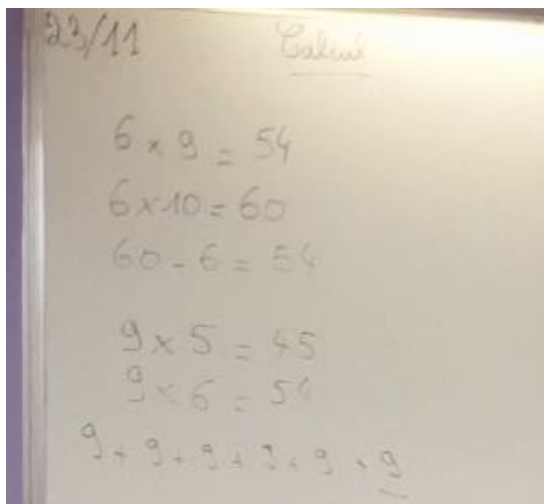 23/11 Calcul
6 × 9 = 54
6 × 10 = 60
60 - 6 = 54
9 × 5 = 45
9 × 6 = 54
9 + 9 + 9 + 9 + 9 + 9